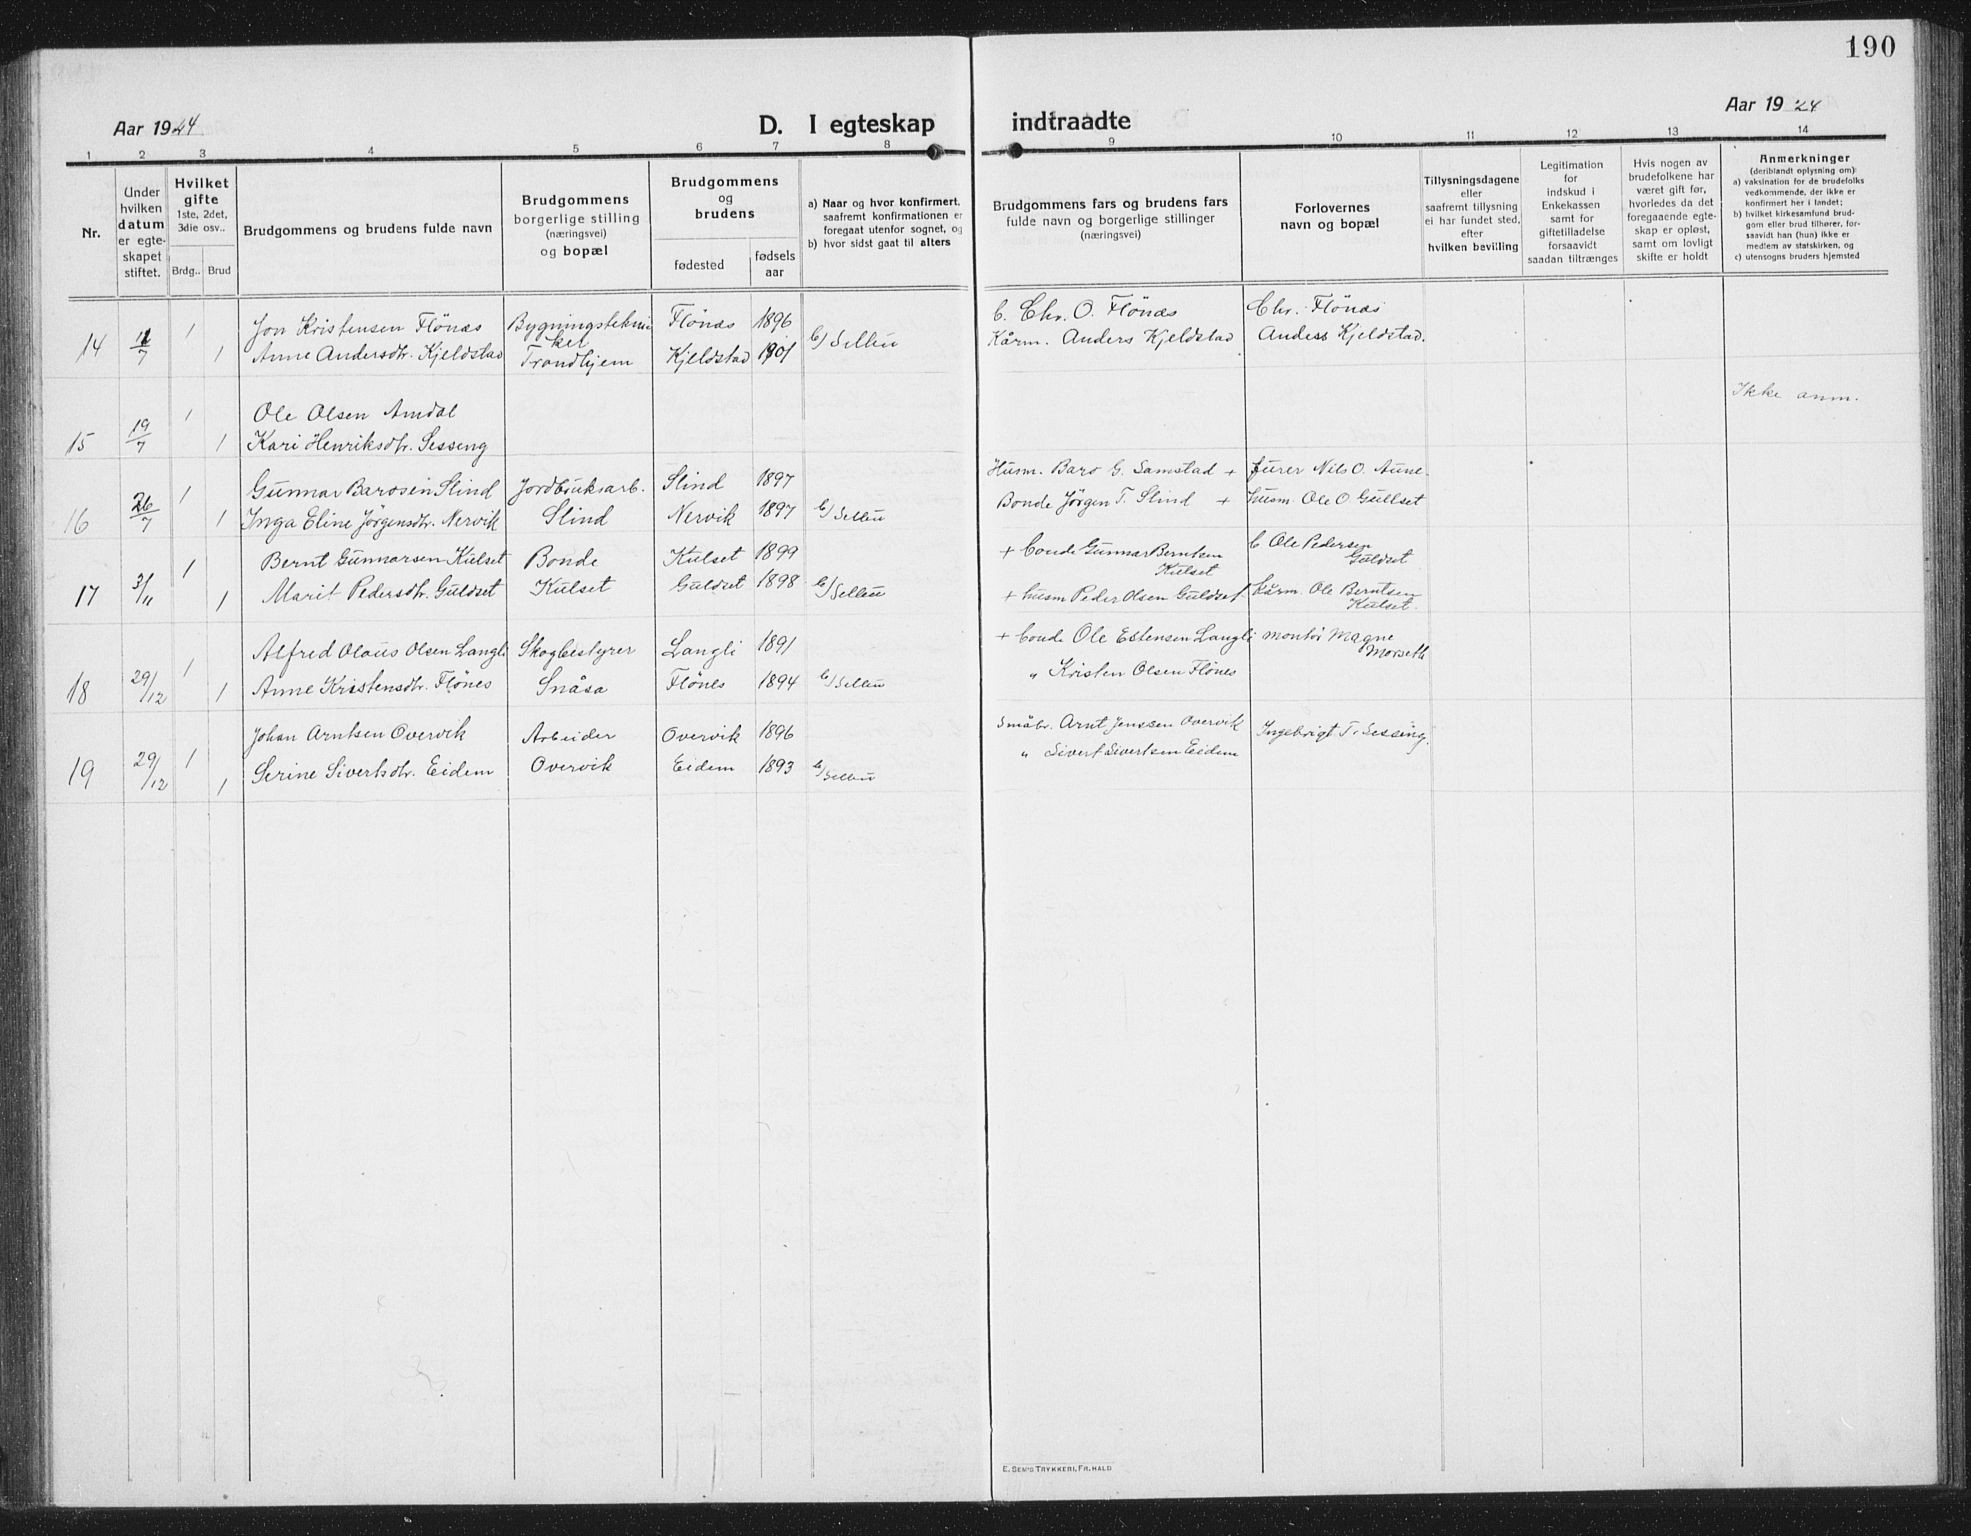 190
Aar 1924
D. I egteskap indtraadte
Aar 1924
1 2 3 4 5 6 7 8 9 10 11 12 13 14
Nr.
Under
hvilken
datum
er egte-
skapet
stiftet.
Hvilket
gifte
1ste, 2det,
3die osv..
Brdg.. Brud
Brudgommens og brudens fulde navn
Brudgommens
borgerlige stilling
(næringsvei)
og bopæl
Brudgommens
og
brudens
fødested
fødsels
aar
a) Naar og hvor konfirmert,
saafremt konfirmationen er
foregaat utenfor sognet, og
b) hvor sidst gaat til alters
Brudgommens fars og brudens fars
fulde navn og borgerlige stillinger
(næringsvei)
Forlovernes
navn og bopæl
Tillysningsdagene
eller
saafremt tillysning
ei har fundet sted,
efter
hvilken bevilling
Legitimation
for
indskud i
Enkekassen
samt for
giftetilladelse
forsaavidt
saadan tiltrænges
Hvis nogen av
brudefolkene har
været gift før,
hvorledes da det
foregaaende egte-
skap er opløst,
samt om lovligt
skifte er holdt
Anmerkninger
(deriblandt oplysning om):
a) vaksination for de brudefolks
vedkommende, der ikke er
konfirmert her i landet;
b) hvilket kirkesamfund brud-
gom eller brud tilhører, for-
saavidt han (hun) ikke er
medlem av statskirken, og
c) utensogns bruders hjemsted
14 11/7 1 Jon Kristensen Flönæs Bygningstekni Flönæs 1896 b. Chr. O. Flönæs Chr. Flönæs
ker
1 Anne Andersdtr. Kjeldstad Trondhjem Kjeldstad 1901 b) Selbu Kårm. Anders Kjeldstad Anders Kjeldstad.
15 19/7 1 Ole Olsen Amdal Ikke anm.
1 Kari Henriksdtr. Sesseng
16 26/7 1 Gunnar Barosen Slind Jordbruksarb. Slind 1897 Husm. Baro G. Samstad + furer Nils O. Aune
1 Inga Eline Jørgensdtr. Nervik Slind Nervik 1897 b) Selbu Bonde Jørgen T. Slind + husm. Ole O Gullset
17 3/11 1 Bernt Gunnarsen Kulset Bonde Kulset 1899 + bonde Gunnar Berntsen b Ole Pedersen
Kulset Guldset
1 Marit Pedersdtr. Guldset Kulset Guldset 1898 b) Selbu + husm Peder Olsen Guldset kårm. Ole Berntsen
Kulset.
18 29/12 1 Alfred Olaus Olsen Langli Skogbestyrer Langli 1891 + bonde Ole Estensen Langli montör Magne
Morseth
1 Anne Kristensdtr. Flönes Snåsa Flönes 1894 b) Selbu " Kristen Olsen Flönes
19 29/12 1 Johan Arntsen Overvik Arbeider Overvik 1896 Småbr. Arnt Jenssen Overvik Ingebrigt T. Sessing.
1 Serine Sivertsdtr. Eidem Overvik Eidem 1893 b) Selbu " Sivert Sivertsen Eidem
E. SEM'S TRYKKERI, FR.HALD